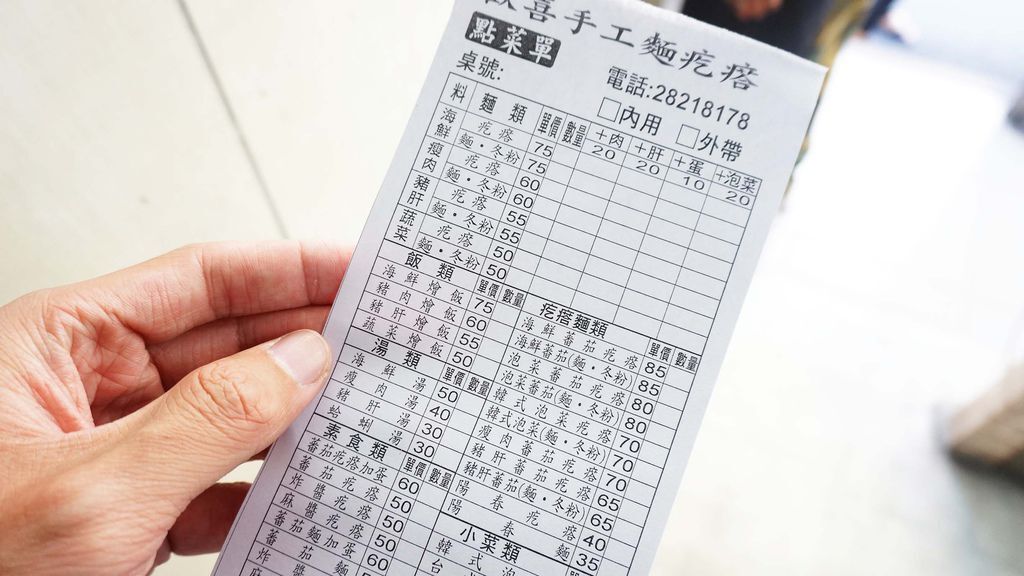 喜手工麵疙瘩
點菜單
桌號:
電話:28218178
□內用 □外帶
料 麵類 單價 數量 +肉20 +肝20 +蛋10 +泡菜20
海鮮 疙瘩 75
麵・冬粉 75
瘦肉 疙瘩 60
麵・冬粉 60
豬肝 疙瘩 55
麵・冬粉 55
蔬菜 疙瘩 50
麵・冬粉 50
飯類 單價 數量
海鮮燴飯 75
豬肉燴飯 60
豬肝燴飯 55
蔬菜燴飯 50
湯類 單價 數量
海鮮湯 50
瘦肉湯 40
豬肝湯 30
蛤蜊湯 30
素食類 單價 數量
蕃茄疙瘩加蛋 60
蕃茄疙瘩 50
炸醬疙瘩 50
麻醬疙瘩 50
蕃茄麵加蛋 60
蕃茄麵 50
炸
麻
疙瘩麵類 單價 數量
海鮮蕃茄疙瘩 85
海鮮蕃茄(麵・冬粉) 85
泡菜蕃茄疙瘩 80
泡菜蕃茄(麵・冬粉) 80
韓式泡菜疙瘩 70
韓式泡菜(麵・冬粉) 70
瘦肉蕃茄疙瘩 70
豬肝蕃茄疙瘩 65
豬肝蕃茄(麵・冬粉) 65
陽春疙瘩 40
陽春麵 35
小菜類 單價 數量
韓式泡
台